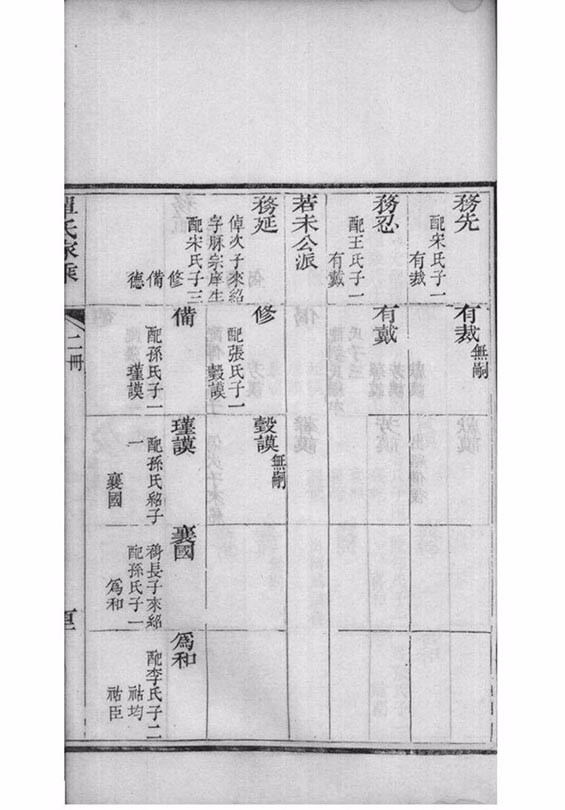 務先
配宋氏子一
有裁
有裁
無嗣
務忍
配王氏子一
有戴
有戴
若未公派
務延
倬次子來紹
字脉宗庠生
配宋氏子三
修
備
德
修
配張氏子一
毂謨
毂謨
無嗣
備
配孫氏子一
瑾謨
瑾謨
配孫氏紹子
一
襄國
襄國
長子來紹
配孫氏子一
爲和
爲和
配李氏子二
祜均
祜臣
氏家乘
二冊